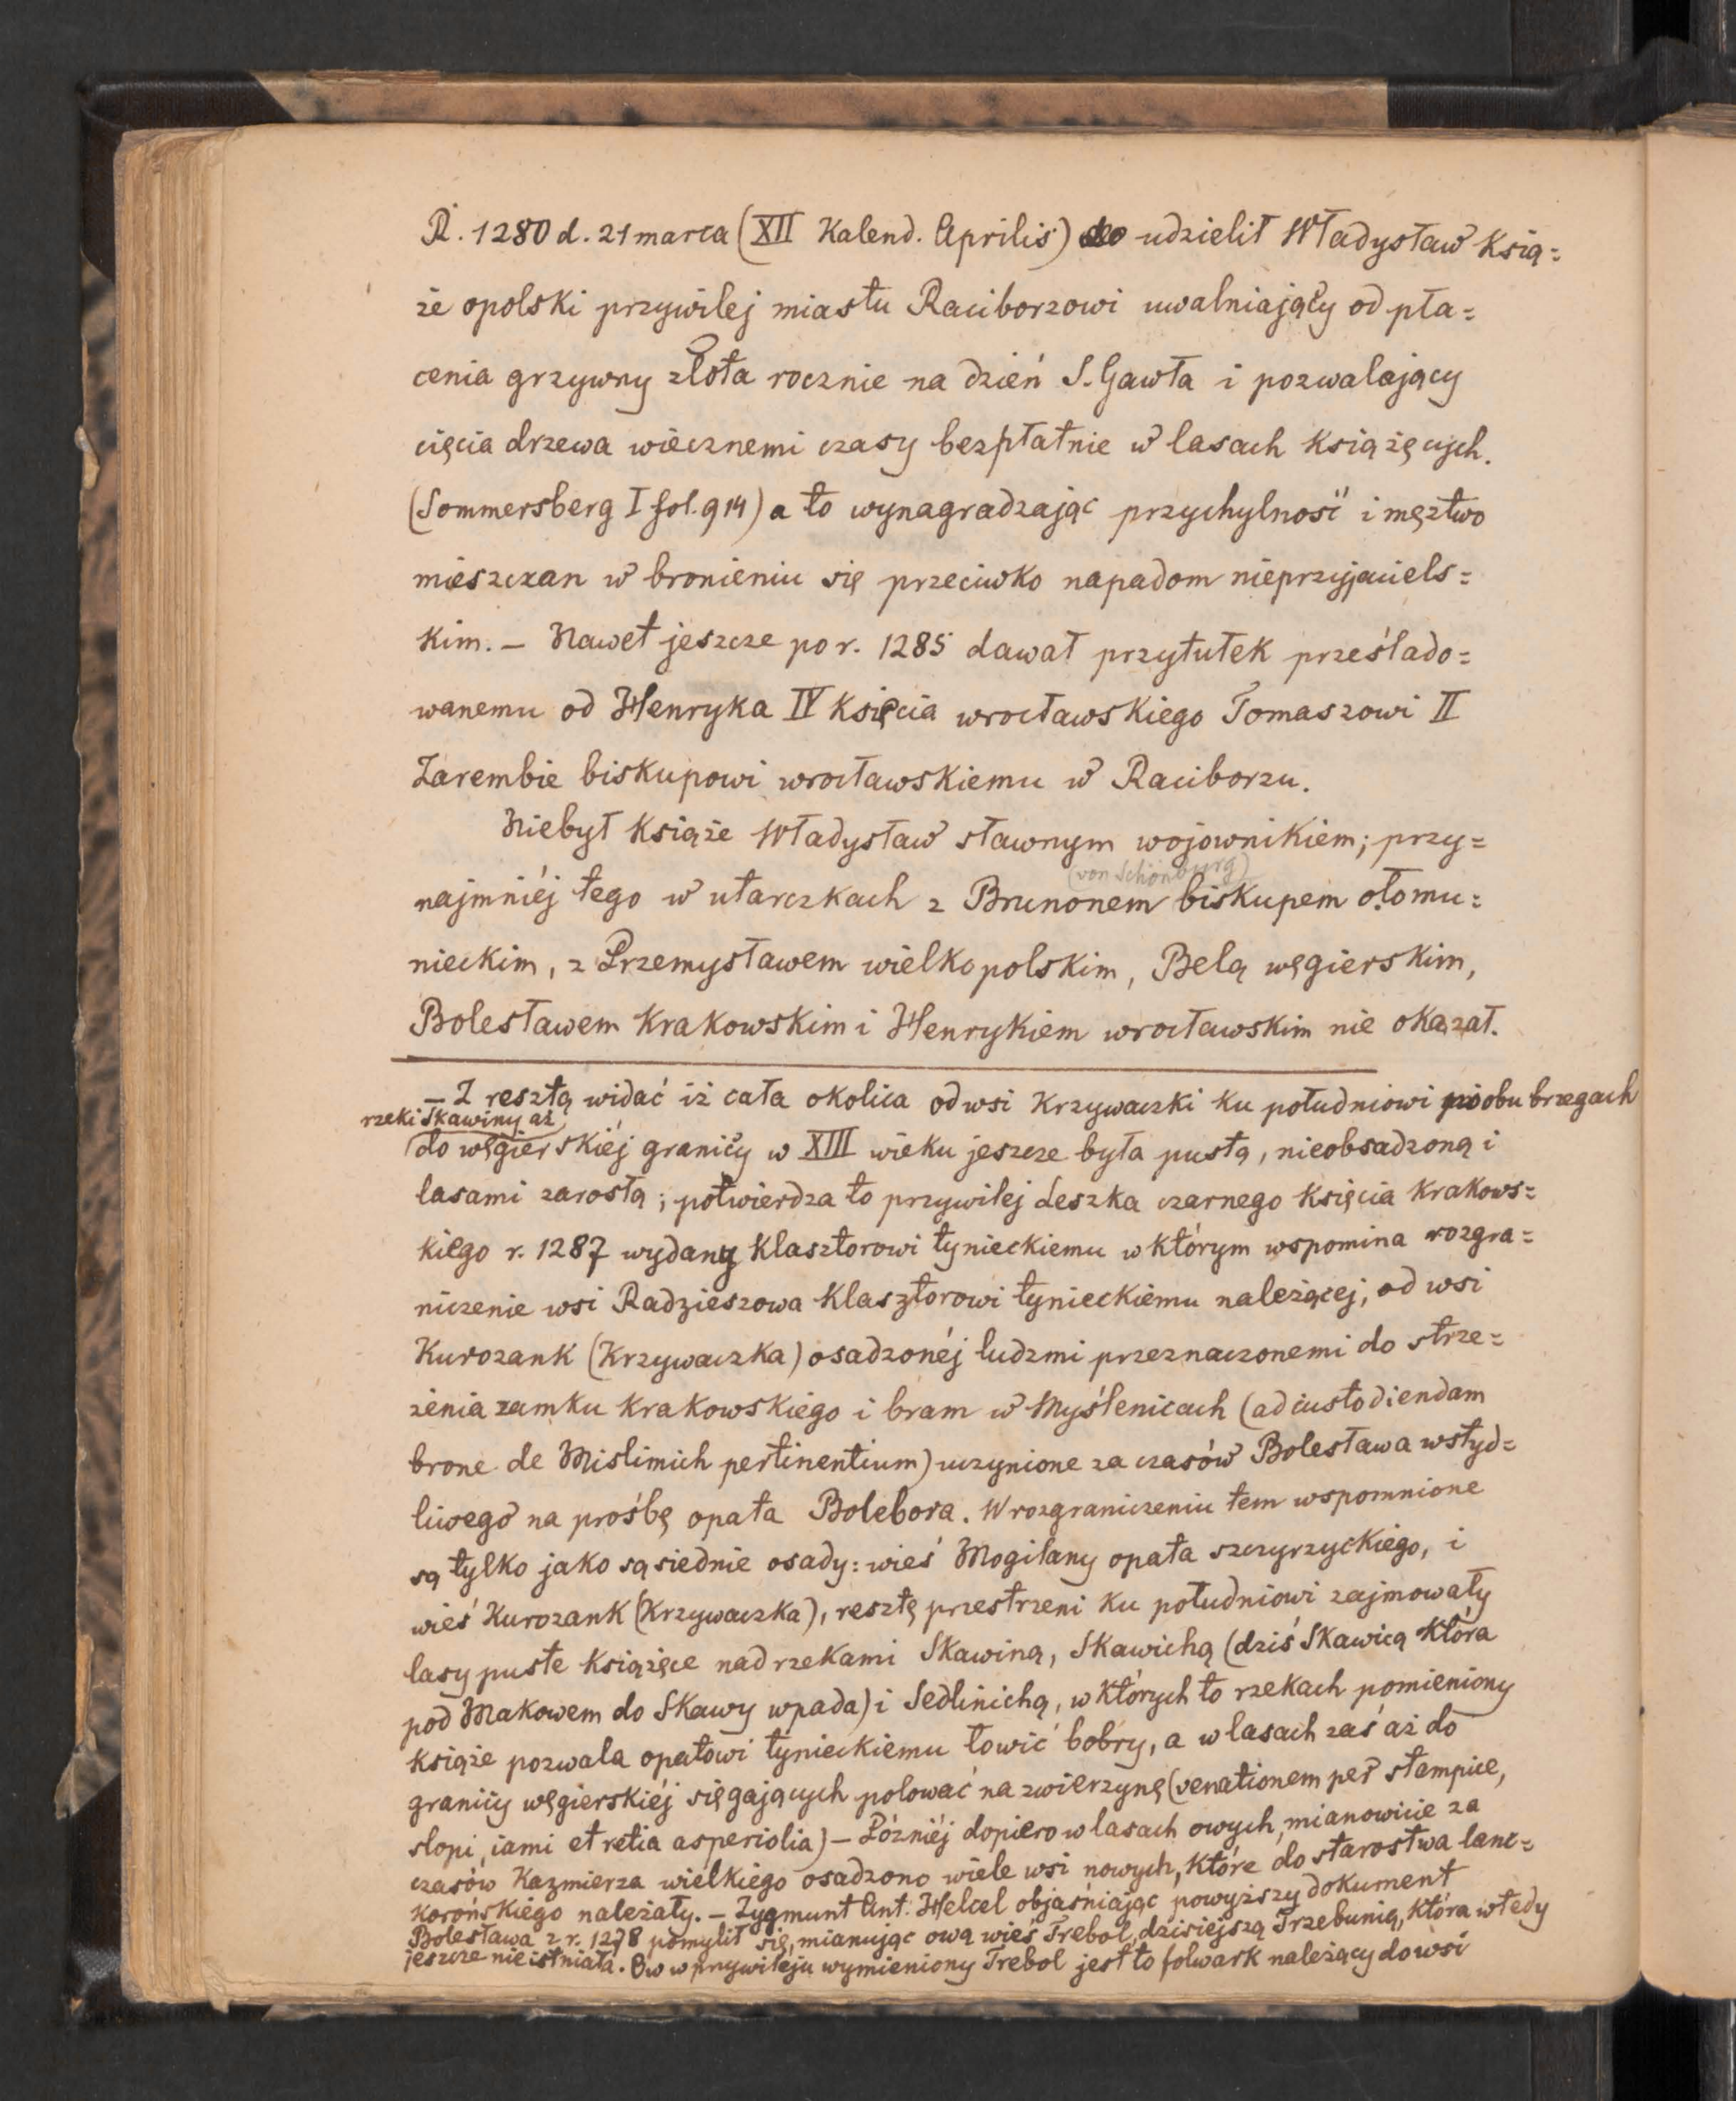 R. 1280 d. 21 marca (XII Kalend. Aprilis) udzielił Władysław Ksią=
że opolski przywilej miastu Raciborzowi uwalniający od pła=
cenia grzywny złota rocznie na dzień S. Gawła i pozwalający
cięcia drzewa wiecznemi czasy bezpłatnie w lasach książęcych.
(Sommersberg I fol. 914) a to wynagradzając przychylność i męztwo
mieszczan w bronieniu się przeciwko napadom nieprzyjaciels=
kim. – Nawet jeszcze po r. 1285 dawał przytułek prześlado=
wanemu od Henryka IV księcia wrocławskiego Tomaszowi II
Zarembie biskupowi wrocławskiemu w Raciborzu.
Niebył książe Władysław sławnym wojownikiem; przy=
(von Schönburg)
najmniéj tego w utarczkach z Brunonem biskupem ołomu=
nieckim, z Przemysławem wielkopolskim, Belą węgierskim,
Bolesławem Krakowskim i Henrykiem wrocławskim nie okazał.
– Z resztą widać iż cała okolica od wsi Krzywaczki ku południowi po obu brzegach
rzeki Skawiny aż
do węgierskiéj granicy w XIII wieku jeszcze była pustą, nieobsadzoną i
lasami zarosłą; potwierdza to przywilej Leszka czarnego księcia krakows=
kiego r. 1287 wydany klasztorowi tynieckiemu w którym wspomina rozgra=
niczenie wsi Radzieszowa klasztorowi tynieckiemu należącej, od wsi
Kurozank (Krzywaczka) osadzonéj ludzmi przeznaczonemi do strze=
żenia zamku krakowskiego i bram w Myślenicach (ad custodiendam
brone de Mislimich pertinentium) uczynione za czasów Bolesława wstyd=
liwego na prośbę opata Bolebora. W rozgraniczeniu tem wspomnione
są tylko jako sąsiednie osady: wieś Mogilany opata szczyrzyckiego, i
wieś Kurozank (Krzywaczka), resztę przestrzeni ku południowi zajmowały
lasy puste książęce nad rzekami Skawiną, Skawichą (dziś Skawicą która
pod Makowem do Skawy wpada) i Sedlinichą, w których to rzekach pomieniony
książe pozwala opatowi tynieckiemu łowić bobry, a w lasach zaś aż do
granicy węgierskiéj sięgających polować na zwierzynę (venationem per stampice,
slopi, iami et retia asperiolia) – Późniéj dopiero w lasach owych, mianowicie za
czasów Kazmierza wielkiego osadzono wiele wsi nowych, które do starostwa lanc=
korońskiego należały. – Zygmunt Ant. Helcel objaśniając powyższy dokument
Bolesława z r. 1278 pomylił się, mianując ową wieś Trebol, dzisiejszą Trzebunią, która wtedy
jeszcze nie istniała. Ow w przywileju wymieniony Trebol jest to folwark należący do wsi